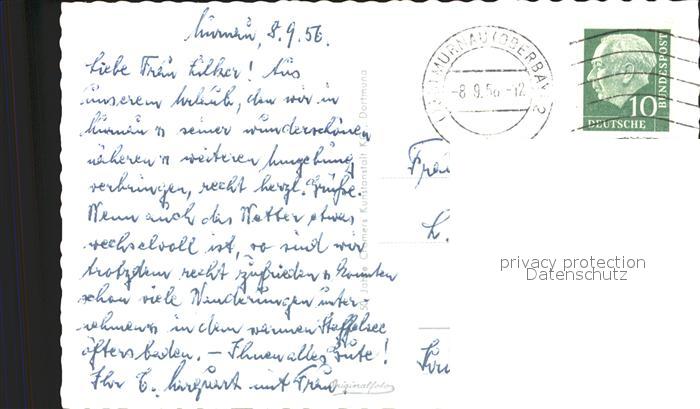 Murnau, 8.9.56.
Liebe Frau Lilker! Aus
unserem Urlaub, den wir in
Murnau u seiner wunderschönen
näheren u weiteren Umgebung
verbringen, recht herzl. Grüße.
Wenn auch das Wetter etwas
wechselvoll ist, so sind wir
trotzdem recht zufrieden u konnten
schon viele Wanderungen unter-
nehmen u in dem warmen Staffelsee
öfters baden. – Ihnen alles Gute!
Ihr E. mit Frau.
MURNAU (OBERBAY) 2
-8.9.56-12
10
DEUTSCHE
BUNDESPOST
Frau
L.
Jahre Cramers Kunstanstalt KG, Dortmund
Originalfoto
privacy protection
Datenschutz